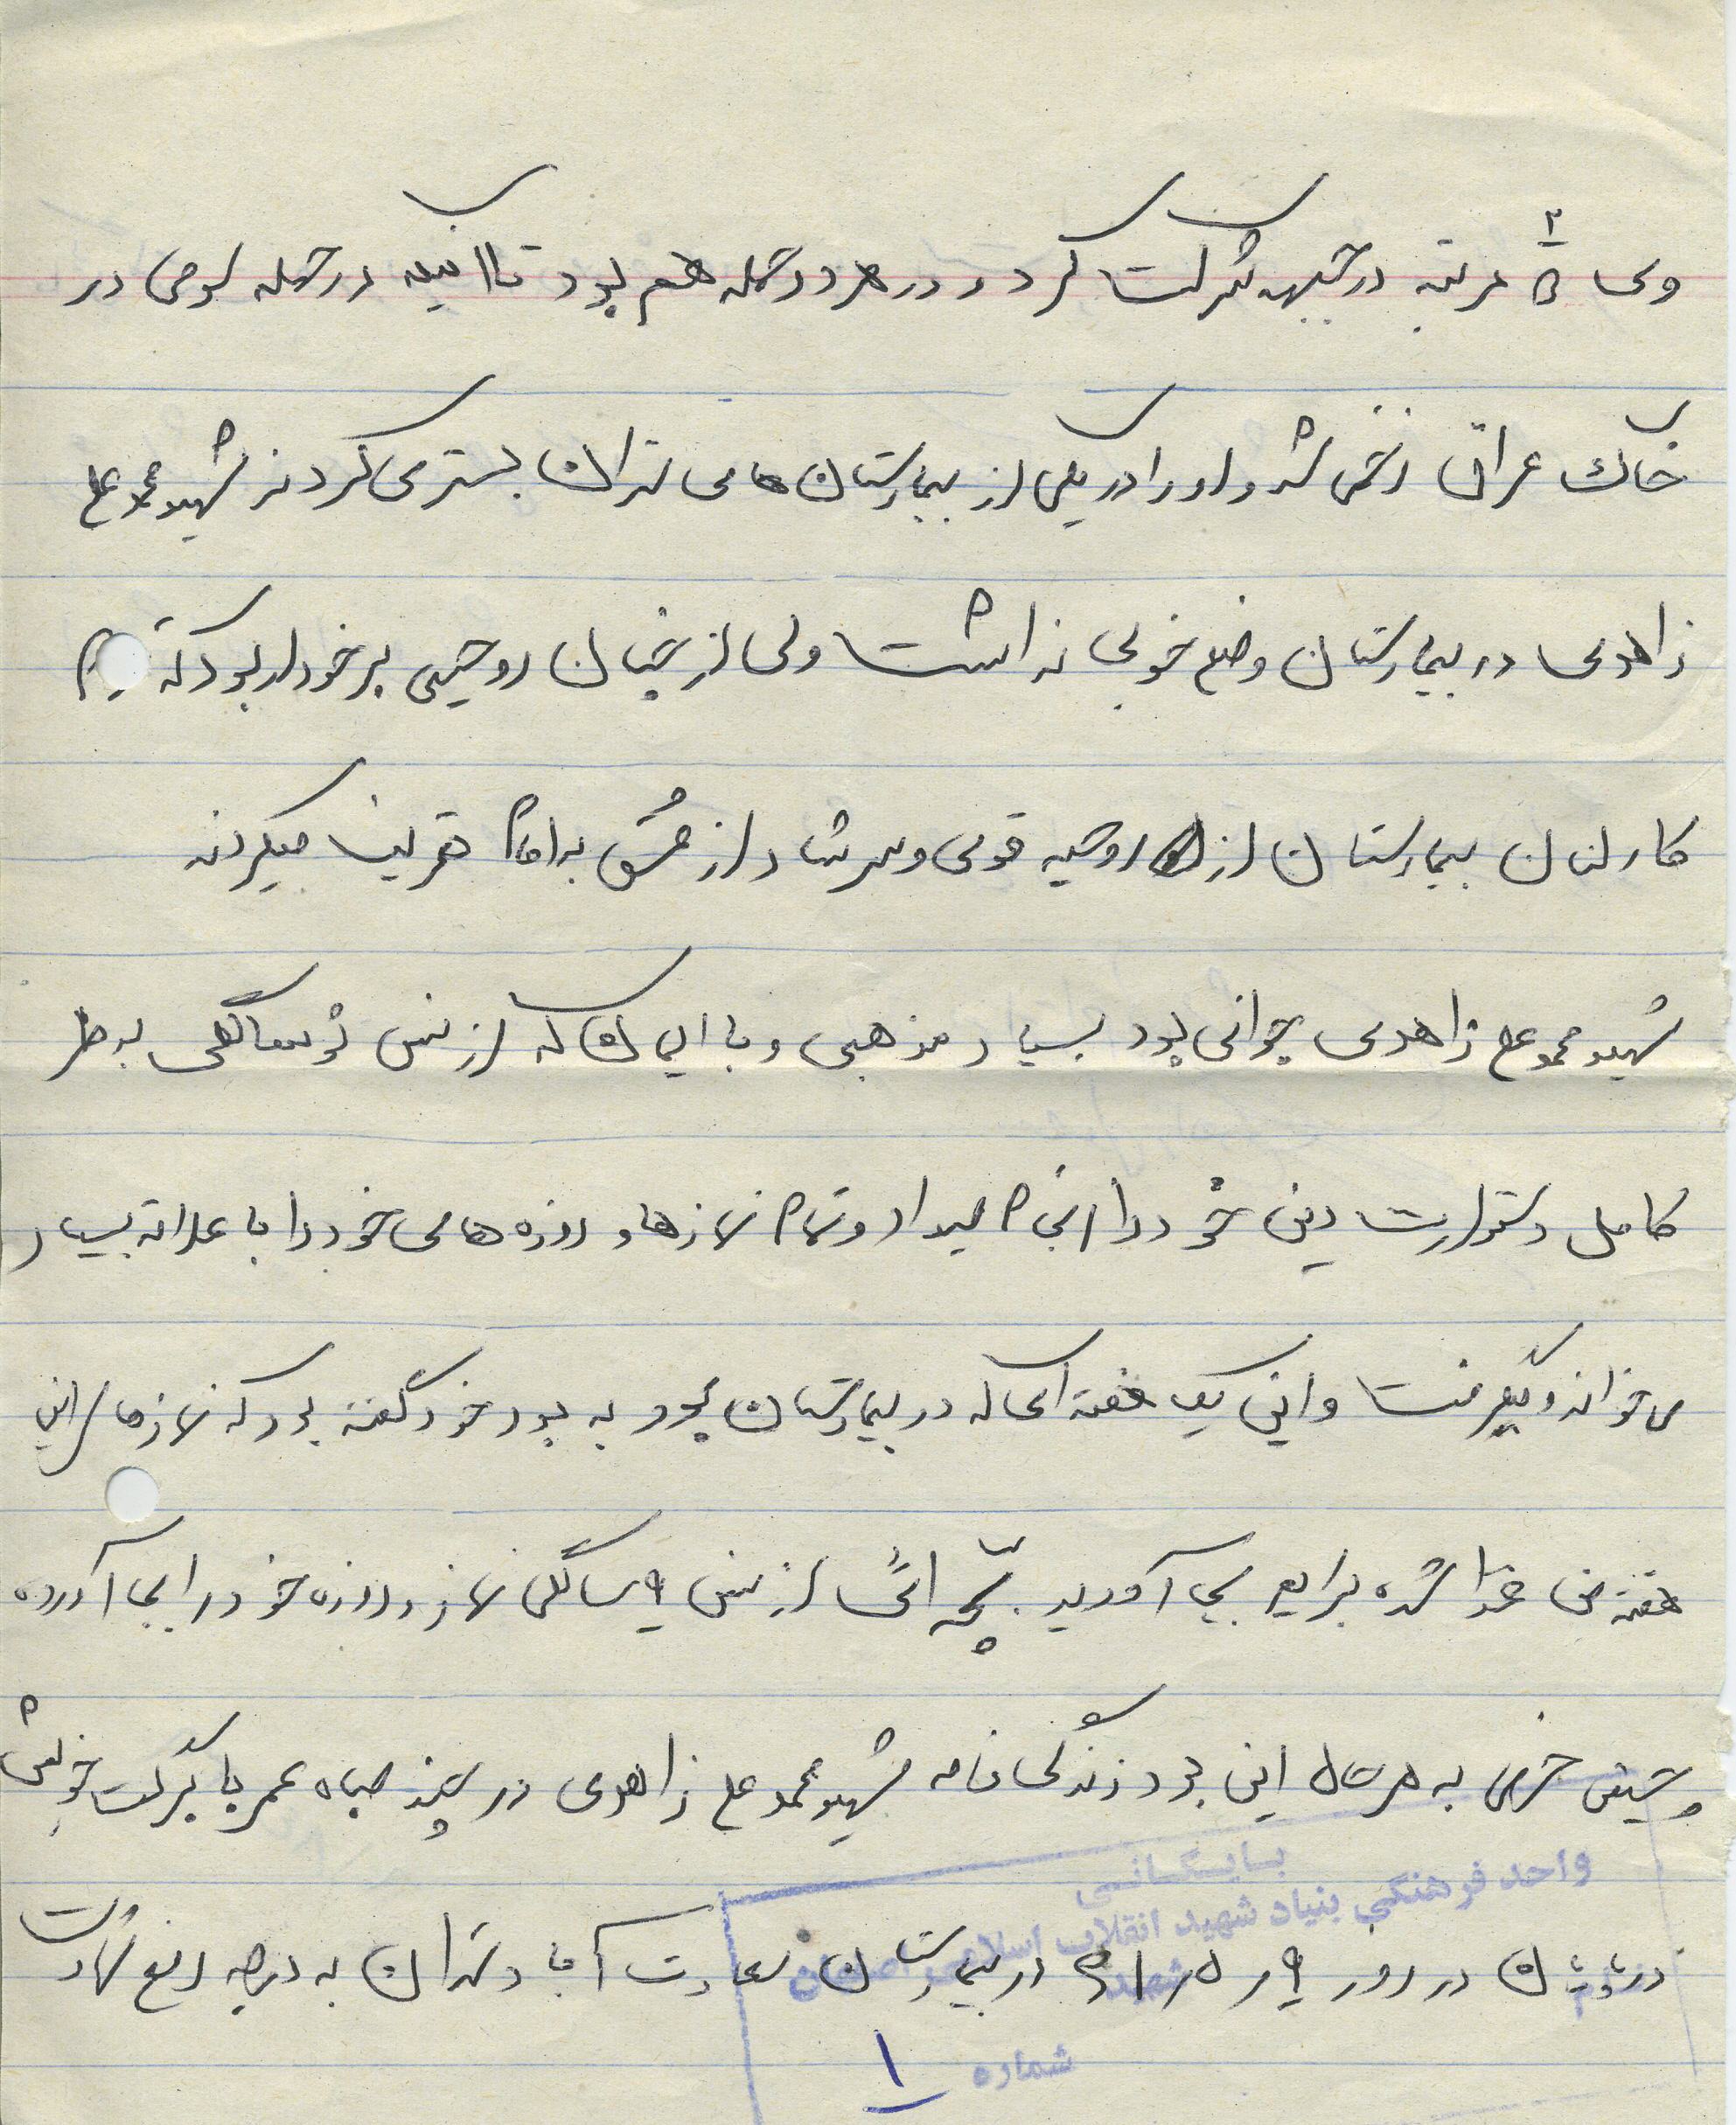 وی ۵ مرتبه در جبهه شرکت کرد و در هر دو حمله هم بود تا اینکه در حمله در
خاک عراق زخمی شد و او را در یکی از بیمارستان های تهران بستری کردند شهید محمدعلی
زاهدی در بیمارستان وضع خوبی نداشت ولی از چنان روحیی برخوردار بود که
کارکنان بیمارستان از روحیه قوی و سرشار از عشق به امام تعریف میکردند
شهید محمدعلی زاهدی جوانی بود بسیار مذهبی و با ایمان که از سن سالگی به طور
کامل دستورات دینی خود را انجام میداد و تمام نمازها و روزه های خود را با علاقه بسیار
می خواند و میگرفت و این یک هفته ای که در بیمارستان بود به خود گفته بود که نمازهای این
هفته من برایم بجا آورید. بچه ای از سن ۹ سالگی نماز و روزه خود را بجا آورده
به هرحال این بود زندگی نامه شهید محمدعلی زاهدی در چند صباه عمر با برکت خویش
در روز در بیمارستان سعادت آباد تهران به درجه رفیع شهادت
بایگانی
واحد فرهنگی بنیاد شهید انقلاب اسلامی
شماره ۱